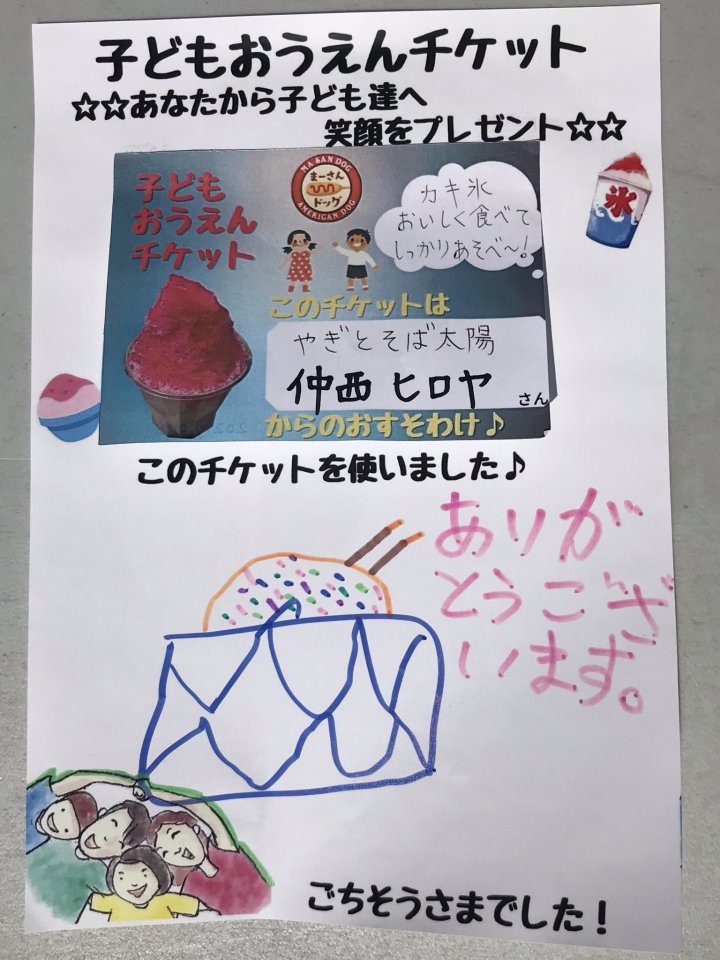 子どもおうえんチケット
☆☆あなたから子ども達へ
笑顔をプレゼント☆☆
子ども
おうえん
チケット
MA SAN DOG
まーさん
ドッグ
AMERICAN DOG
カキ氷
おいしく食べて
しっかりあそべ〜!
氷
このチケットは
やぎとそば太陽
仲西 ヒロヤ
さん
からのおすそわけ♪
このチケットを使いました♪
ありが
とうござ
います。
ごちそうさまでした!